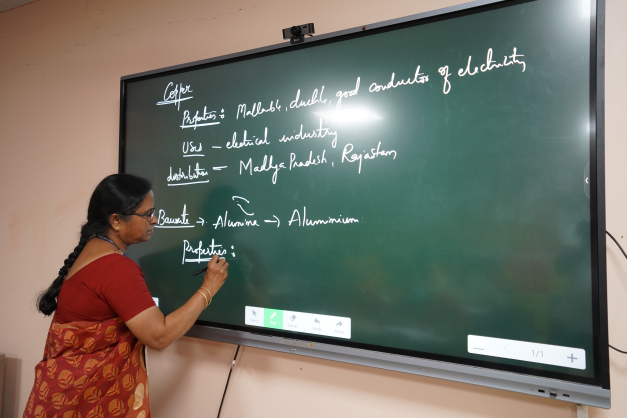 Copper
Properties: Malleable, ductile, good conductor of electricity
Uses - electrical industry
distribution - Madhya Pradesh, Rajastan
Bauxite → Alumina → Aluminium
Properties:
1/1